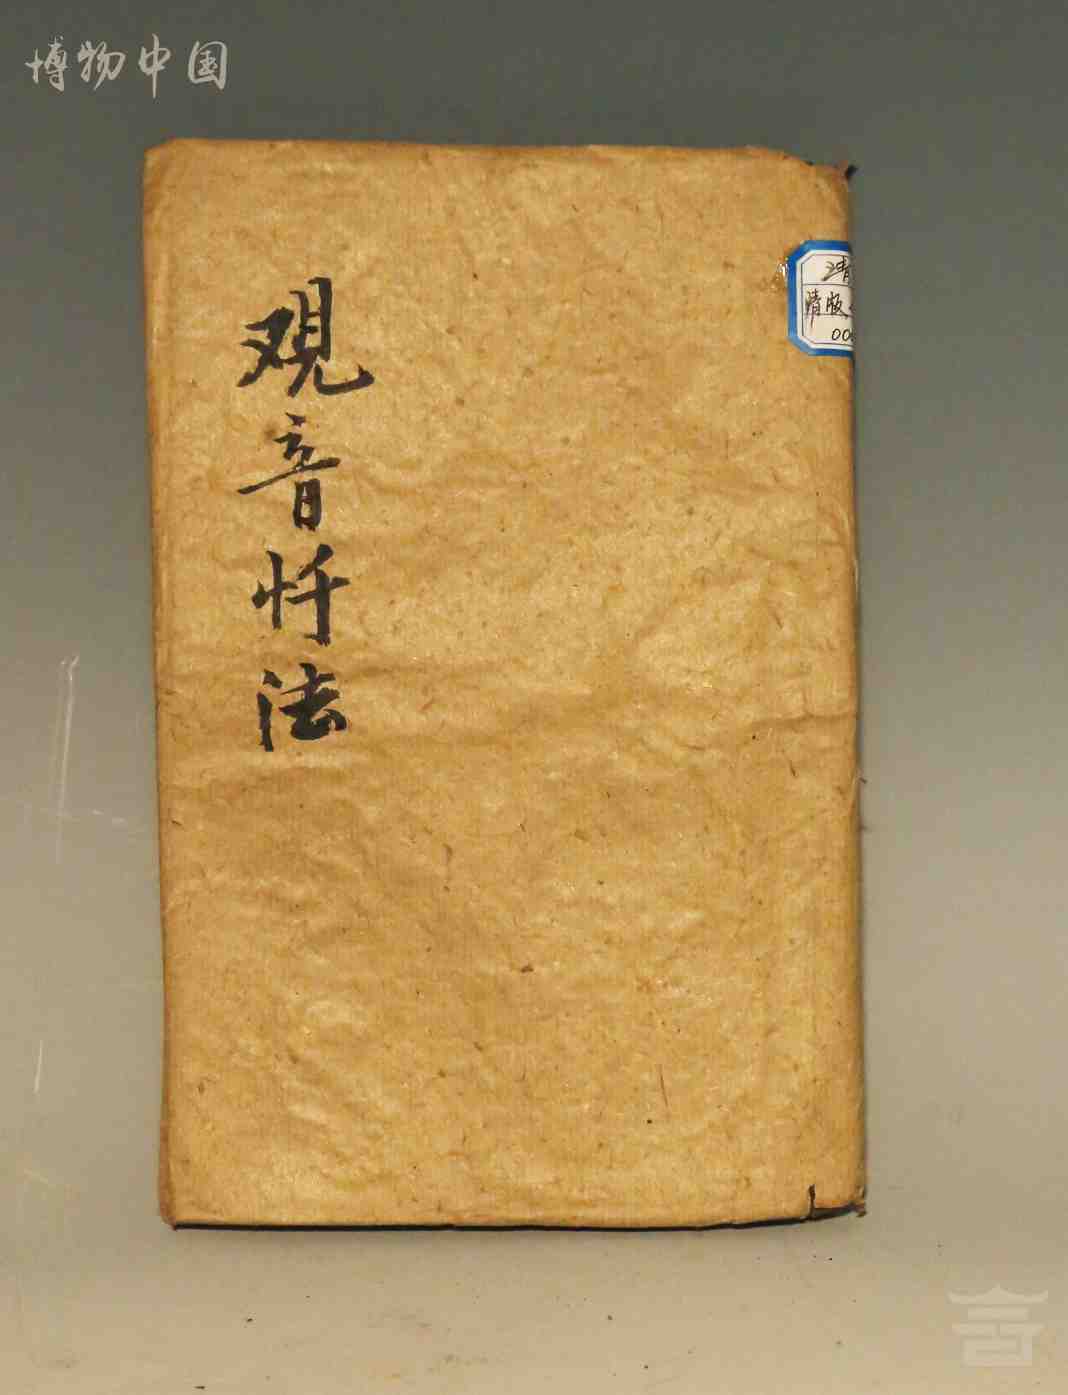 博物中国
观音忏法
清
清版
00